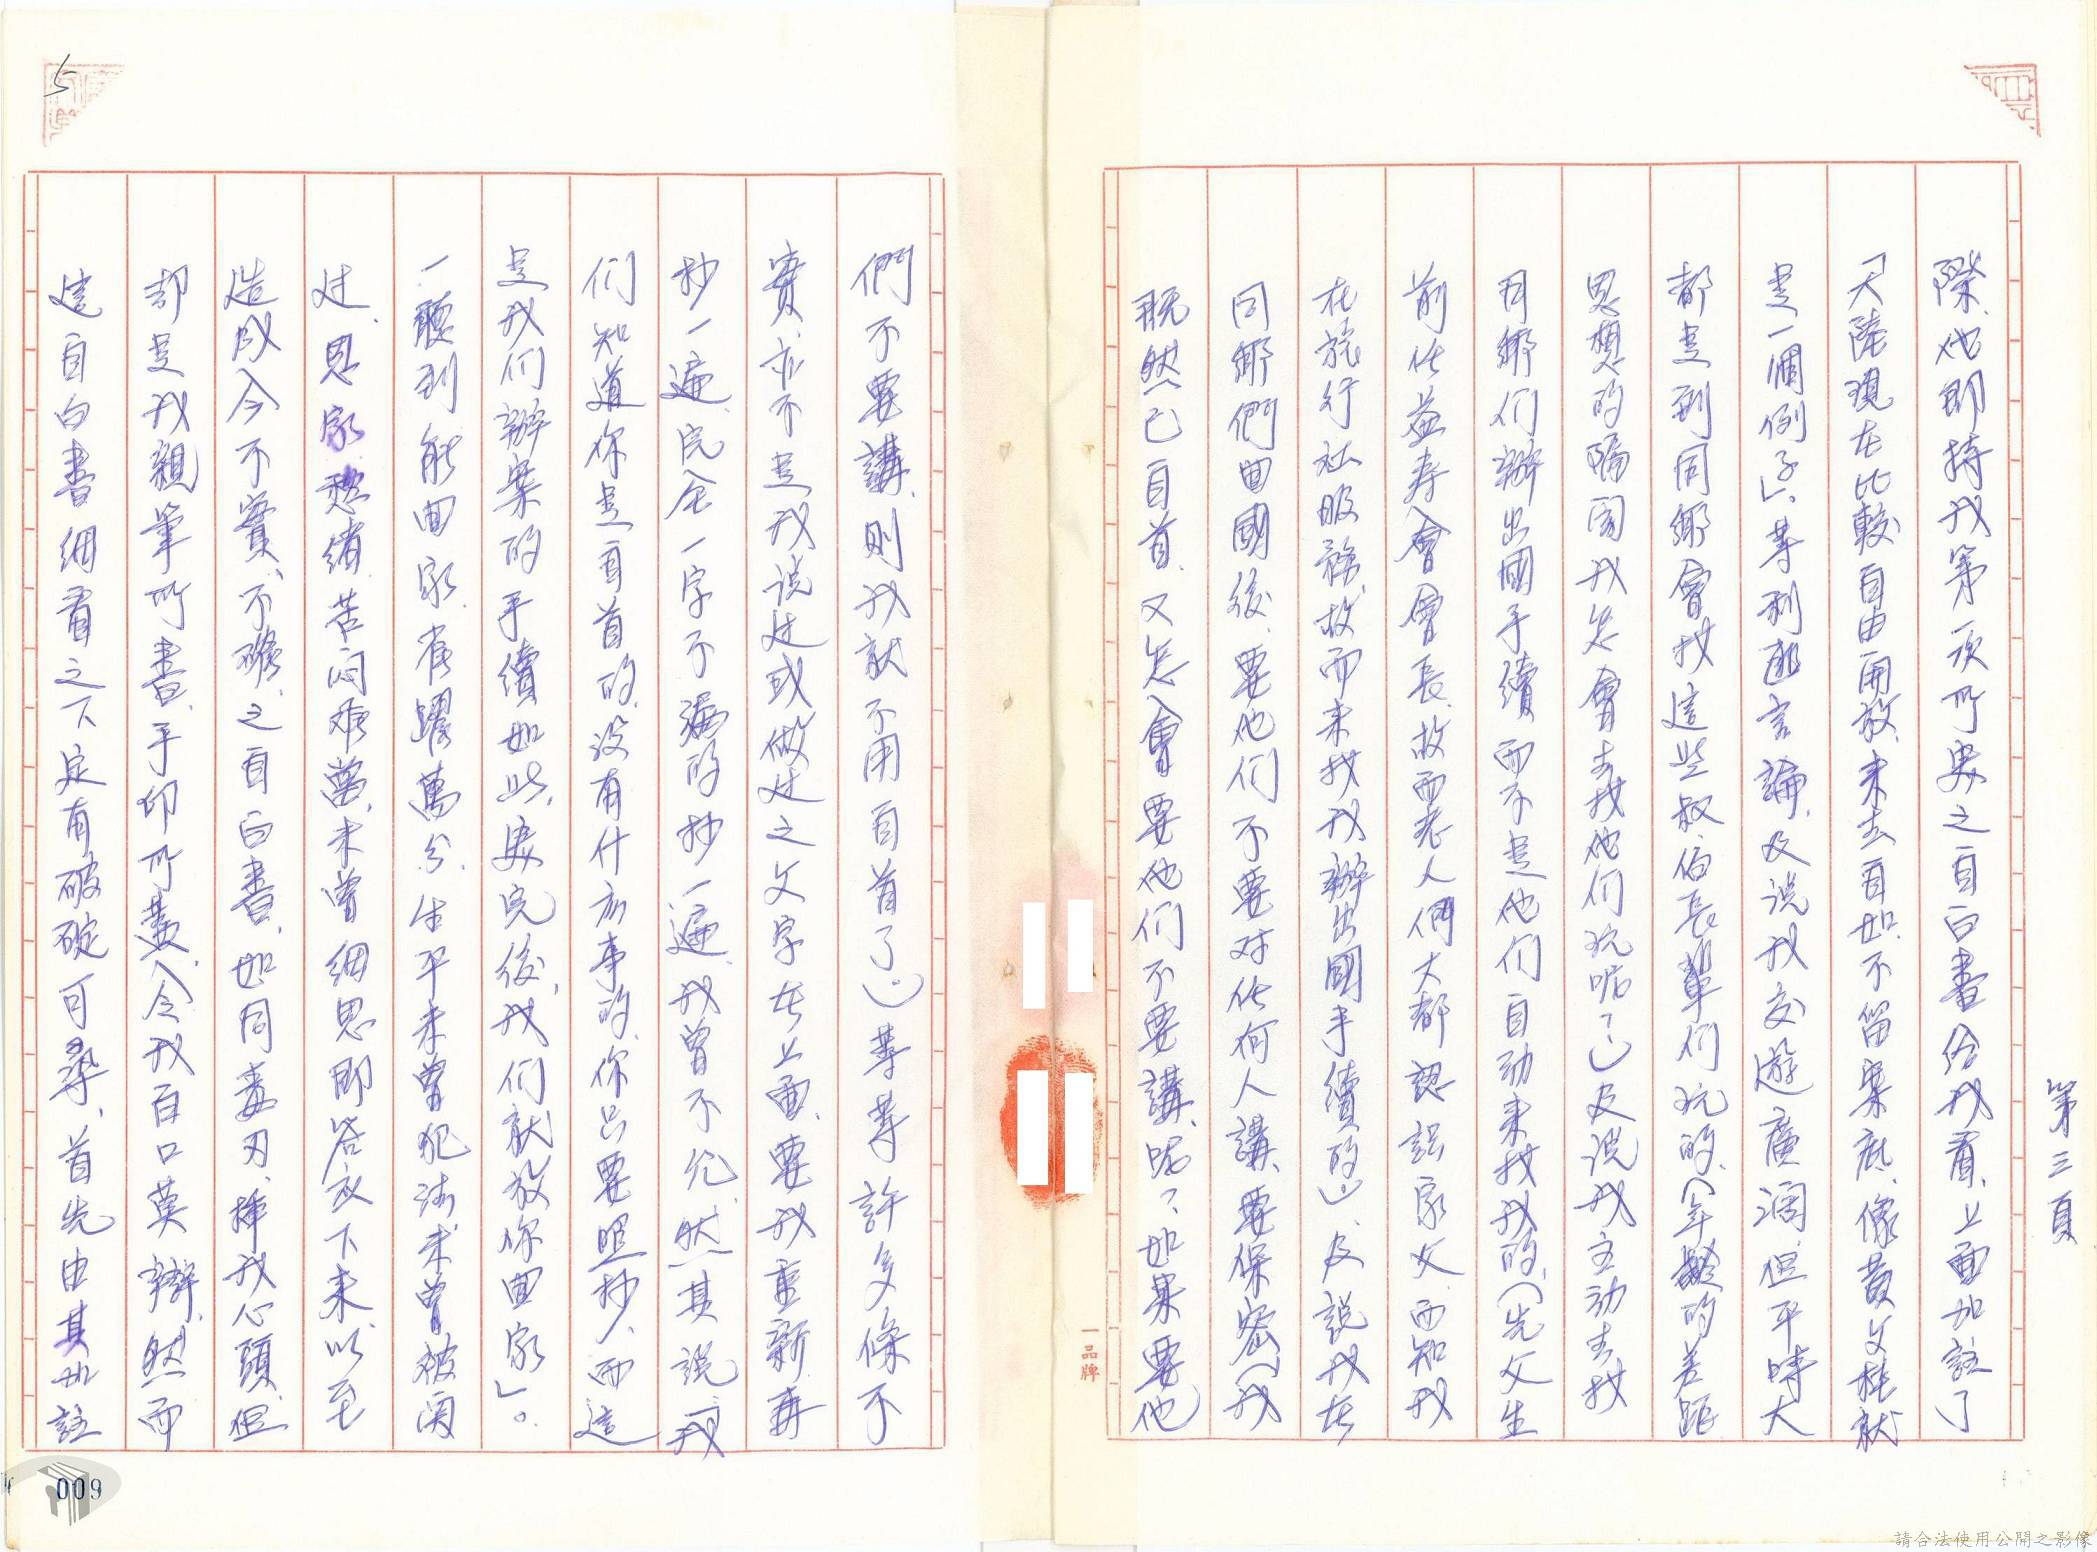 第三頁
際，他即持我第一次所寫之自白書給我看，上面加註了
「大陸現在比較自由開放，來去自如，不留案底，像黃文桂就
是一個例子」。等到逃言論，及说我交遊廣濶，但平時大
都是到同鄉會找這些叔、伯長輩们玩的，（年齡的差距
思想的隔閡我怎會去找他们玩呢？）及说我主动去找
同鄉们辦出國手續，而不是他们自动来找我的，（先父生
前任益寿会會長，故而老人們大都認識家父，而知我
在旅行社服務，故而来找我辦出國手續的。）及說我在
同鄉們回國後，要他们不要对任何人講，要保密（我
既然已自首，又怎会要他们不要講，呢？如果要他
們不要講，則我就不用自首了。）等等許多條不
實，亦不是我说过或做过之文字在上面，要我重新再
抄一遍，完全一字不漏的抄一遍，我曾不允，然其説「我
们知道你是自首的，没有什厷事的，你只要照抄，而這
是我们辦案的手續如此，寫完後，我们就放你回家」。
一聽到能回家，雀躍萬分，生平未曾犯法，未曾被関
过，思家愁緒，苦闷难當，未曾细思即答应下来，以至
造成今不實、不確、之自白書，如同毒刃，揮我心頭，但
却是我親筆所書，手印所蓋，令我百口莫辯，然而
這自白書细看之下定有破碇可尋，首先由其加註
一品牌
5
009
請合法使用公開之影像